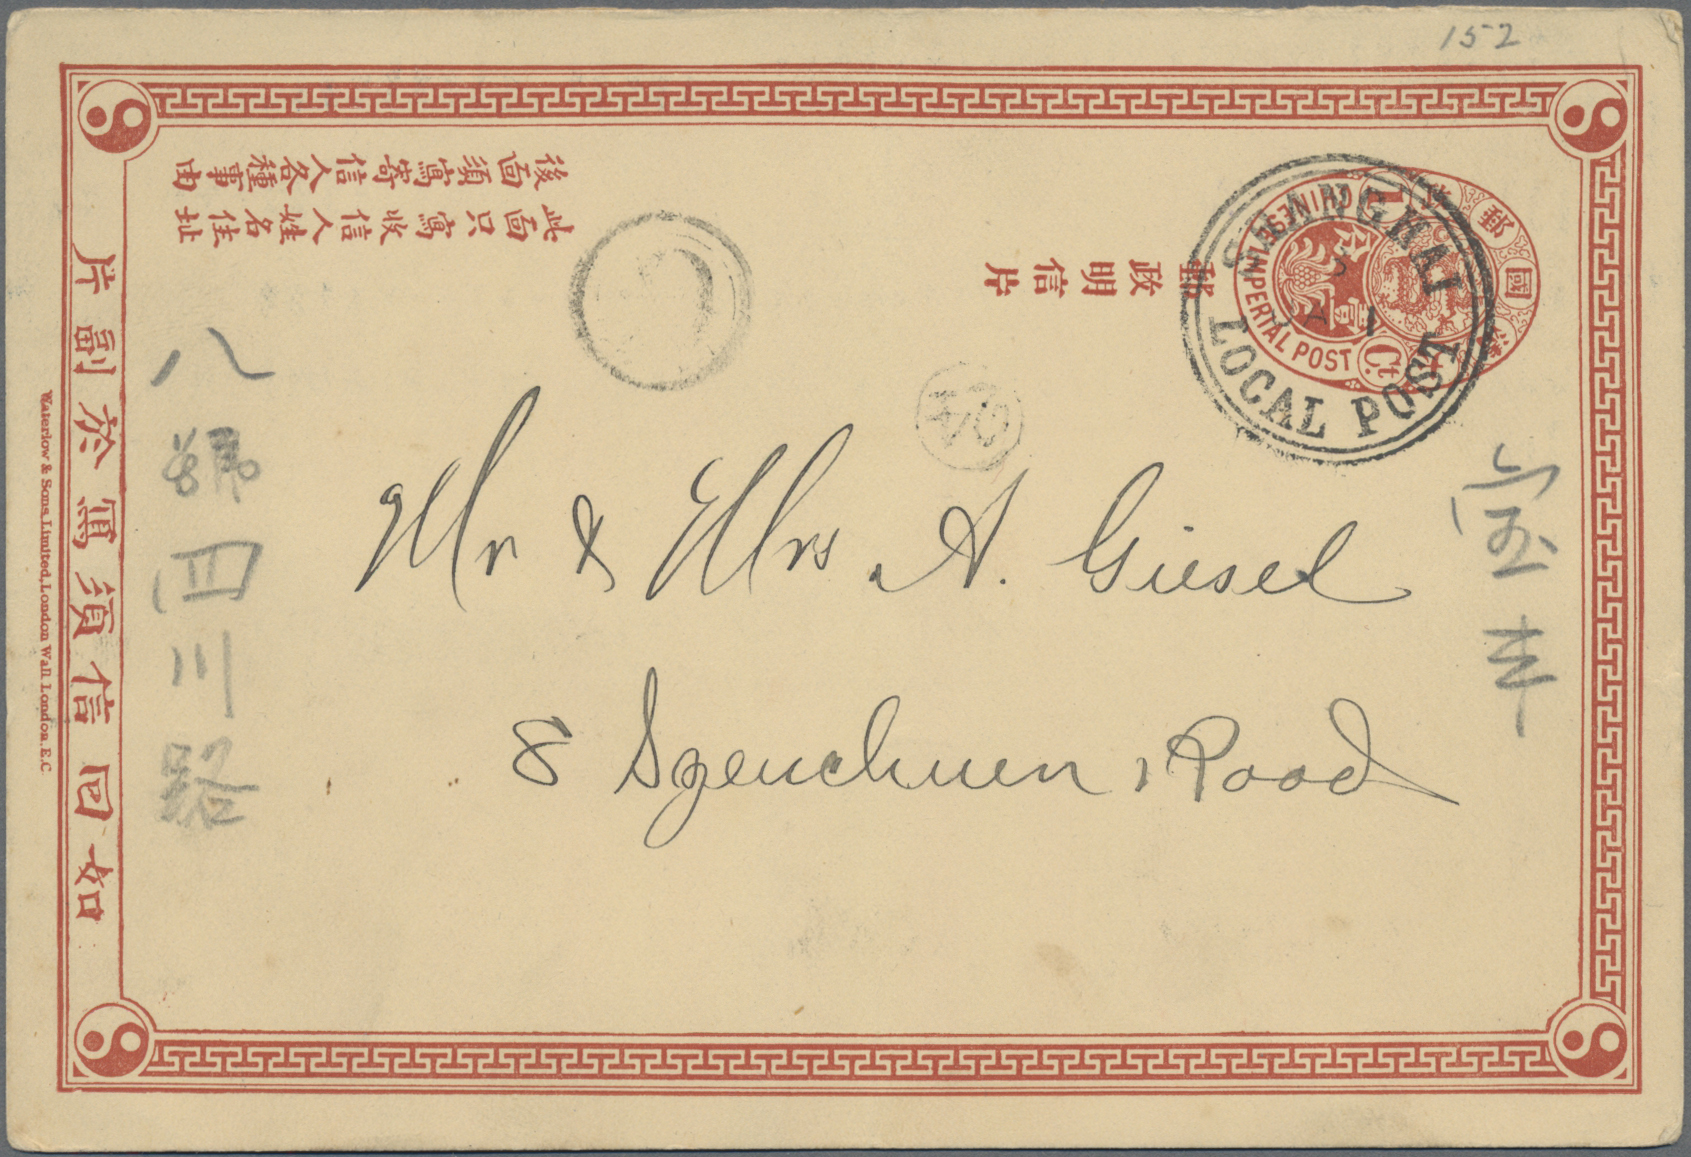 152
後面須寫寄信人各種事由
此面只寫收信人姓名住址
郵政明信片
大清國郵政
CHINESE IMPERIAL POST
1 Ct.
壹分
SHANGHAI
LOCAL POST
Mr & Mrs A. Giesel
8 Szenchuen Road
八號四川路
如回信須寫於副片
Waterlow & Sons Limited, London Wall London. E.C.